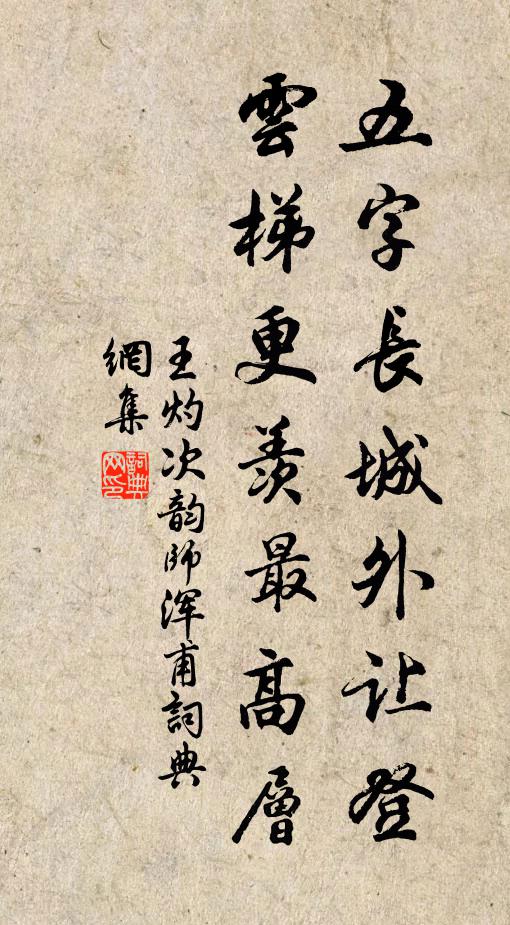 五字長城外让登
雲梯更羨最高層
王灼次韵師渾甫詞典
網集
詞典網印